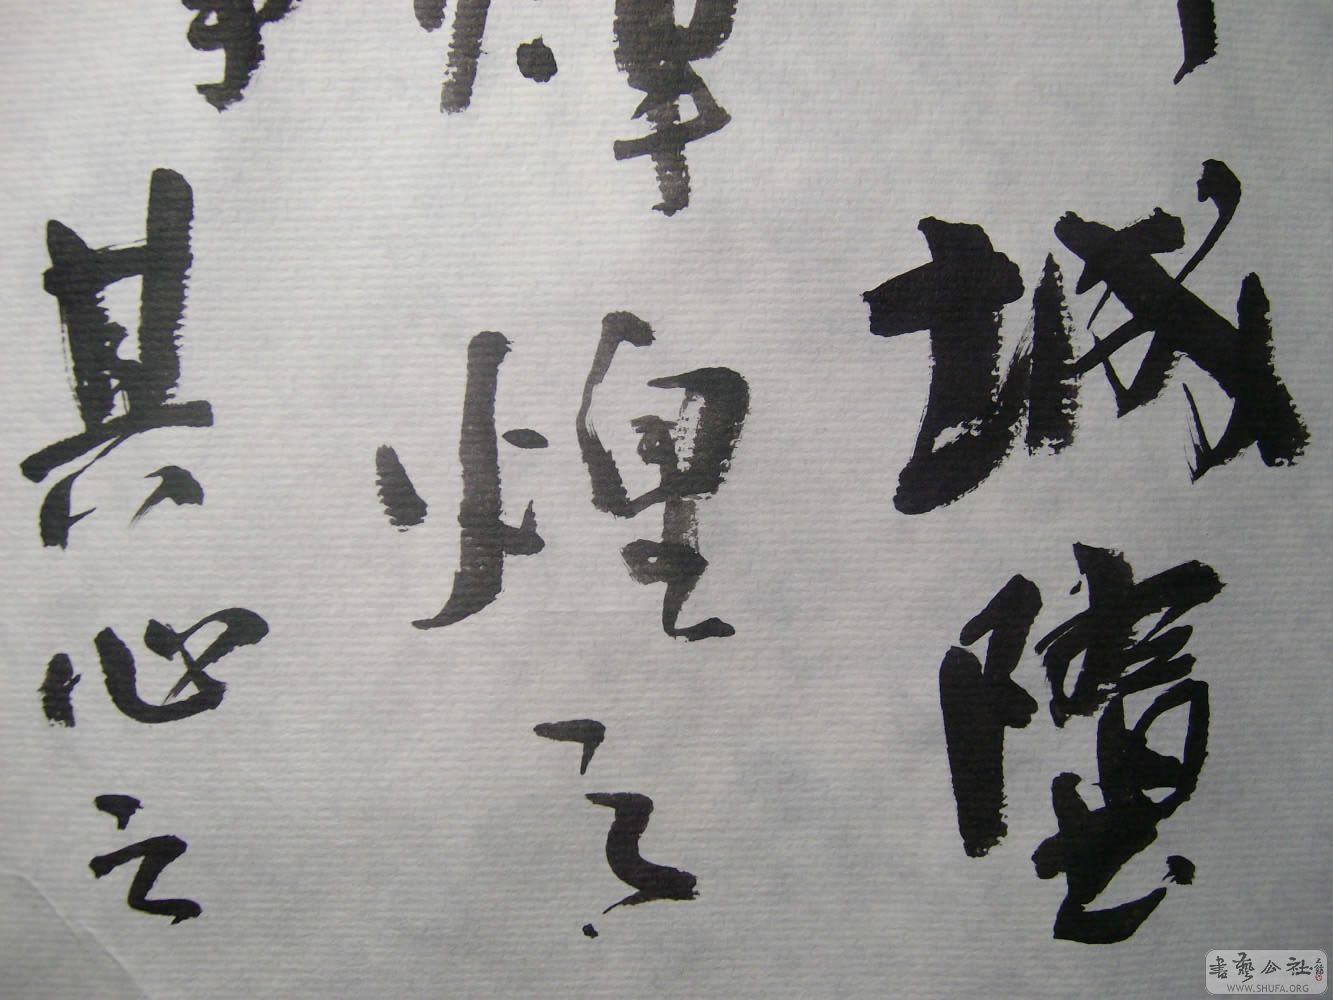 城墮
煇煌之
其心之
書藝公社
WWW.SHUFA.ORG